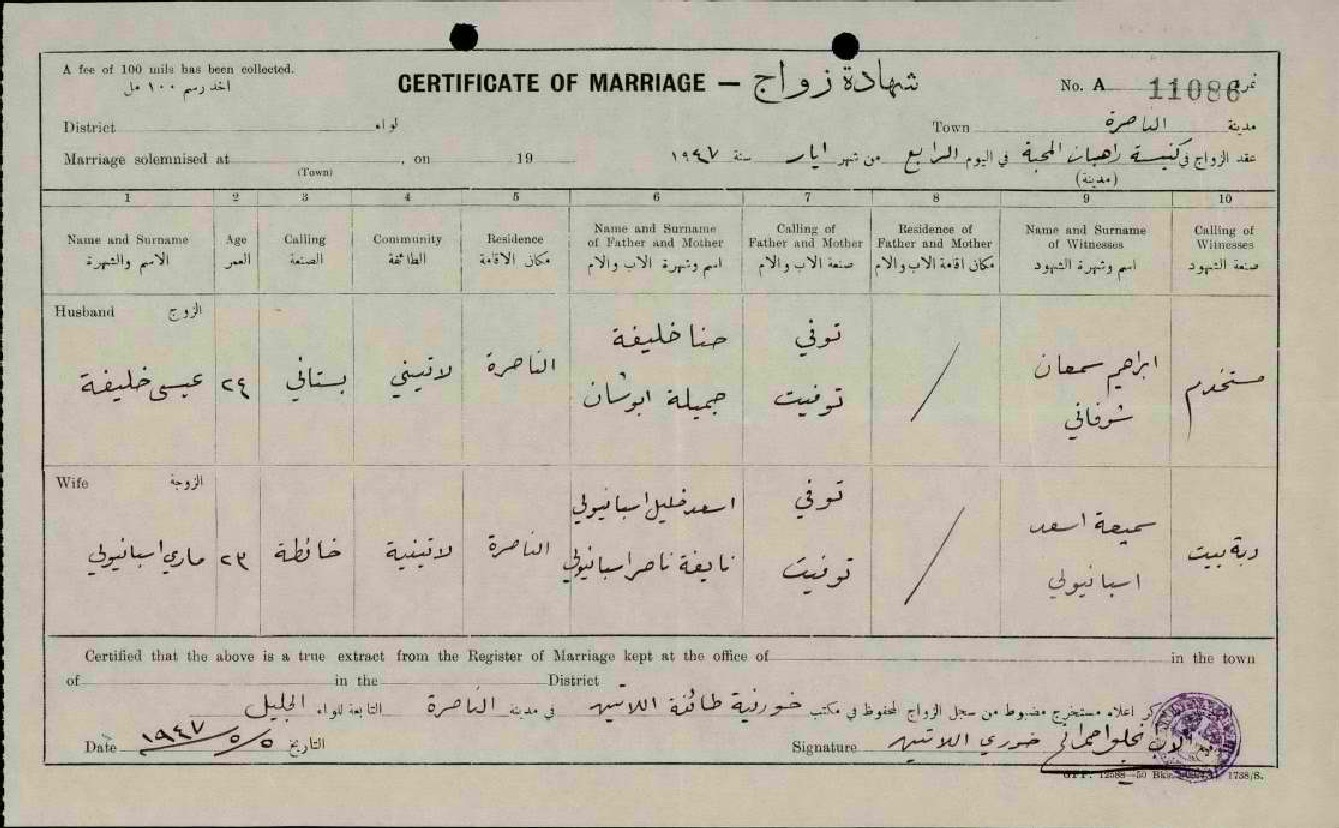 A fee of 100 mils has been collected.
اخذ رسم ١٠٠ مل
CERTIFICATE OF MARRIAGE — شهادة زواج
No. A 11086 نمرة
District لواء
Town الناصرة مدينة
Marriage solemnised at , on 19
(Town)
عقد الزواج في كنيسة راهبات المحبة في اليوم الرابع من شهر ايار سنة ١٩٤٧
(مدينة)
1 2 3 4 5 6 7 8 9 10
Name and Surname
الاسم والشهرة
Age
العمر
Calling
الصنعة
Community
الطائفة
Residence
مكان الاقامة
Name and Surname
of Father and Mother
اسم وشهرة الاب والام
Calling of
Father and Mother
صنعة الاب والام
Residence of
Father and Mother
مكان اقامة الاب والام
Name and Surname
of Witnesses
اسم وشهرة الشهود
Calling of
Witnesses
صنعة الشهود
Husband الزوج
عيسى خليفة
٢٤
بستاني
لاتيني
الناصرة
حنا خليفة
جميلة ابو شان
توفي
توفيت
/
ابراهيم سمعان
شوفاني
مستخدم
Wife الزوجة
ماري اسبانيولي
٢٣
خائطة
لاتينية
الناصرة
اسعد خليل اسبانيولي
نايفة ناصر اسبانيولي
توفي
توفيت
/
سميعة اسعد
اسبانيولي
ربة بيت
Certified that the above is a true extract from the Register of Marriage kept at the office of in the town
of in the District
اعلاه مستخرج مضبوط من سجل الزواج المحفوظ في مكتب خورنية طائفة اللاتين في مدينة الناصرة التابعة للواء الجليل
Date ١٩٤٧/٥/٥ التاريخ
Signature خوري اللاتين
GPP. 12588—50 Bks. 1738/S.